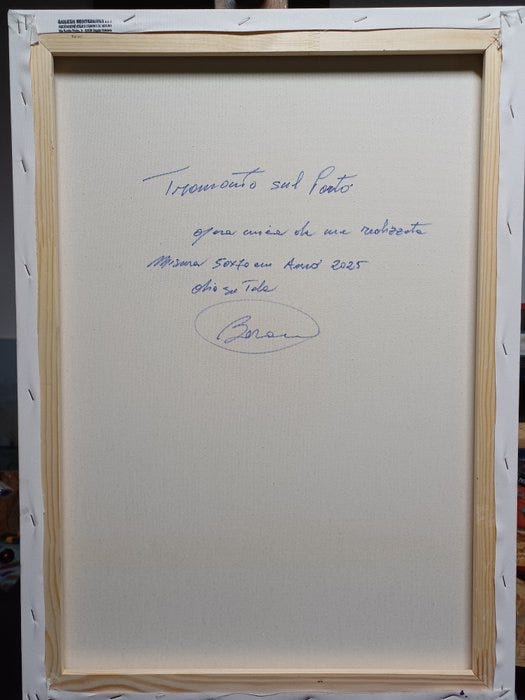 Tramonto sul Porto
opera unica da me realizzata
Misura 50x70 cm Anno 2025
olio su Tela